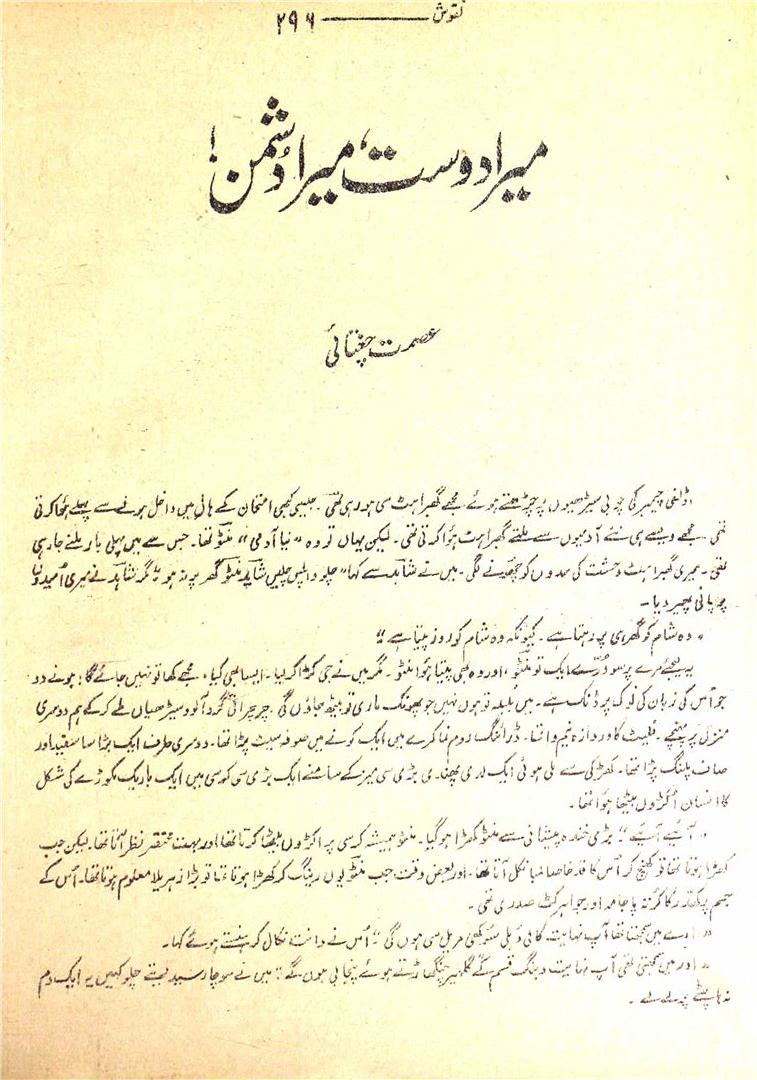 نقوش ——— ۲۹۶
میرا دوست، میرا دُشمن!
عصمت چغتائی
اڈلفی چیمبر کی چوبی سیڑھیوں پر چڑھتے ہوئے مجھے گھبراہٹ سی ہو رہی تھی۔ جیسی کبھی امتحان کے ہال میں داخل ہونے سے پہلے ہُوا کرتی
تھی مجھے ویسے ہی نئے آدمیوں سے ملتے گھبراہٹ ہُوا کرتی تھی۔ لیکن یہاں تو وہ "نیا آدمی" منٹو تھا۔ جس سے میں پہلی بار ملنے جا رہی
تھی۔ میری گھبراہٹ وحشت کی حدوں کو چھونے لگی۔ میں نے شاہد سے کہا "چلو واپس چلیں شاید منٹو گھر پر نہ ہو" مگر شاہد نے میری اُمیدوں
پر پانی پھیر دیا۔
"وہ شام کو گھر ہی پر رہتا ہے۔ کیونکہ وہ شام کو روز پیتا ہے"
یہ لیجئے مرے پر سو دُرّے ایک تو منٹو، اور وہ بھی پیتا ہُوا منٹو۔ مگر میں نے جی کڑا کر لیا۔ ایسا بھی کیا، مجھے کھا تو نہیں جائے گا! ہونے دو
جو اُس کی زبان کی نوک پر ڈنک ہے۔ میں بُلبلہ تو ہوں نہیں جو پھونک ماری تو بیٹھ جاؤں گی چرچراتی گرد آلود سیڑھیاں طے کر کے ہم دوسری
منزل پر پہنچے۔ فلیٹ کا دروازہ نیم وا تھا۔ ڈرائنگ روم نما کمرے میں ایک کونے میں صوفہ سیٹ پڑا تھا۔ دوسری طرف ایک بڑا سا سفید اور
صاف پلنگ پڑا تھا۔ کھڑکی سے ملی ہوئی ایک لدی پھندی بڑی سی میز کے سامنے ایک بڑی سی کرسی میں ایک باریک مکوڑے کی شکل
کا انسان اُکڑوں بیٹھا ہُوا تھا۔
"آیئے آیئے" بڑی خندہ پیشانی سے منٹو کھڑا ہو گیا۔ منٹو ہمیشہ کرسی پر اکڑوں بیٹھا کرتا تھا اور بہت مختصر نظر آتا تھا۔ لیکن جب
کھڑا ہوتا تھا تو کھنچ کر اُس کا قد خاصا لمبا نکل آتا تھا۔ اور بعض وقت جب منٹو یوں رینگ کر کھڑا ہوتا تھا تو بڑا زہریلا معلوم ہوتا تھا۔ اُس کے
جسم پر کھدر کا کرتہ پاجامہ اور جواہر کٹ صدری تھی۔
"ارے میں سمجھتا تھا آپ نہایت کالی دبلی سُوکھی مریل سی ہوں گی" اُس نے دانت نکال کر ہنستے ہوئے کہا۔
"اور میں سمجھتی تھی آپ نہایت دبنگ قسم کے گلہیر چنگھاڑتے ہوئے پنجابی ہوں گے" میں نے سوچا رسید دیتے چلو کہیں یہ ایک دم
نہ ہاتھ لے۔